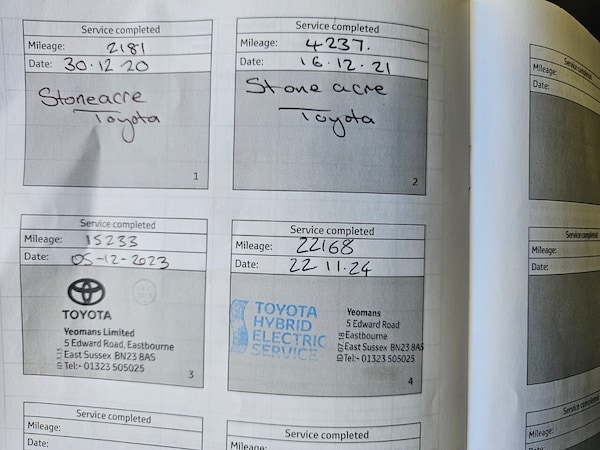 Service completed
Mileage: 2181
Date: 30.12 20
Stoneacre
Toyota
1
Service completed
Mileage: 4237.
Date: 16.12.21
Stone acre
Toyota
2
Service completed
Mileage:
Date:
Service completed
Mileage: 15233
Date: 05-12-2023
TOYOTA
Yeomans Limited
5 Edward Road, Eastbourne
East Sussex BN23 8AS
Tel:- 01323 505025
3
Service completed
Mileage: 22168
Date: 22 11.24
TOYOTA
HYBRID
ELECTRIC
SERVICE
Yeomans
5 Edward Road
Eastbourne
East Sussex BN23 8AS
Tel:- 01323 505025
4
Service completed
Mileage:
Date:
Service completed
Mileage:
Date:
Service completed
Mileage:
Service completed
Mileage:
Date: